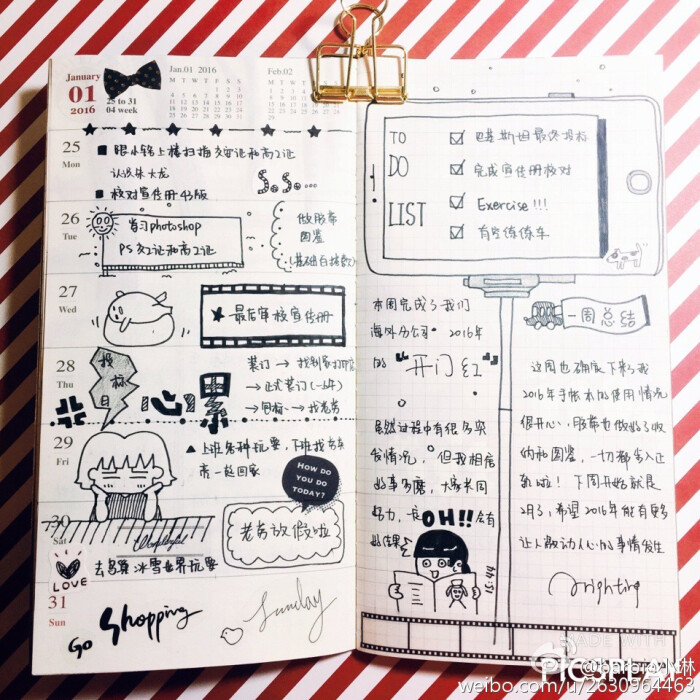 January
01
2016
25 to 31
04 week
Jan.01 2016
Feb.02
M T W T F S S
25
Mon
跟小锦上楼扫描交证和高2证
认识朱大龙
核对宣传册43版
S.S...
26
Tue
学习photoshop
PS交2证和高2证
做服募
图鉴
27
Wed
最后审核宣传册
28
Thu
投标日
心累
装订 → 找别家打印店
→ 正式装订(一2本)
29
Fri
上班各种玩耍，下班找
一起回家
HOW DO
YOU DO
TODAY?
30
Sat
Wonderful
老爷放假啦
LOVE
冰雪世界玩耍
31
Sun
Go Shopping
Sunday
TO
DO
LIST
巴基斯坦最终投标
完成宣传册核对
Exercise!!!
有空练练车
本周完成了我们
海外分公司 2016年
的"开门红"
虽然过程中有很多突
发情况，但我相信
好事多磨，大家共同
努力，一定会有
好结果
OH!!
15:44
一周总结
这周也确定下来了我
2016年手帐本的使用情况
很开心，服募也做好了收
纳和图鉴，一切都步入正
轨啦！下周开始就是
2月了，希望2016年能有更多
让人激动人心的事情发生
MADE WITH
PICSPLAY
weibo.com/u/2630964463